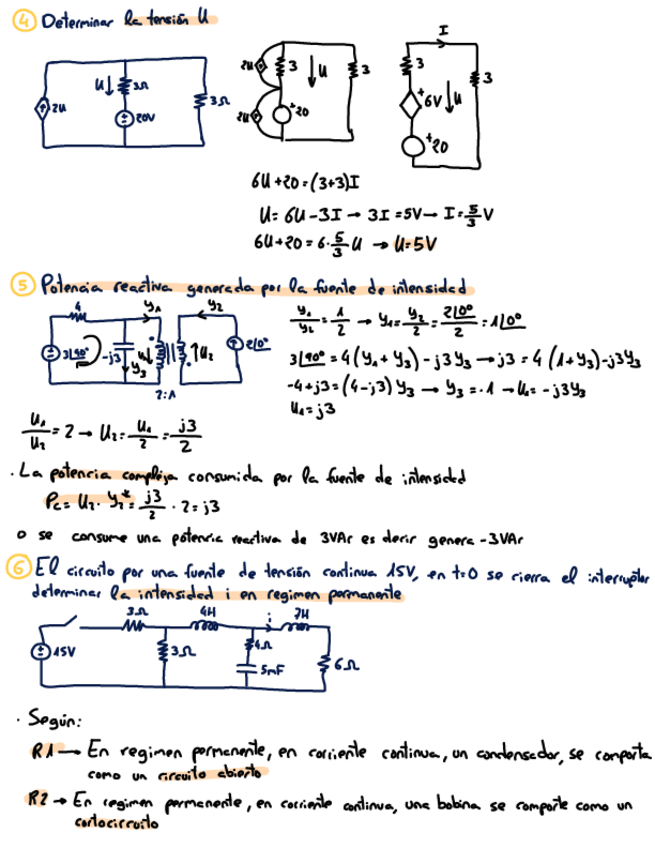 4 Determinar la tensión U
2U
U
3Ω
20V
3Ω
2U
3
U
3
2U
+20
I
3
+6V
U
3
+20
6U+20=(3+3)I
U= 6U-3I → 3I=5V → I=5/3 V
6U+20=6·5/3 U → U=5V
5 Potencia reactiva generada por la fuente de intensidad
4
y1
y2
3∟90°
-j3
y3
U2
2∟0°
2:1
y1/y2 = 1/2 → y1= y2/2 = 2∟0°/2 = 1∟0°
3∟90°=4(y1+y3)-j3y3 → j3=4(1+y3)-j3y3
-4+j3=(4-j3)y3 → y3=-1 → U1=-j3y3
U1=j3
U1/U2 = 2 → U2= U1/2 = j3/2
· La potencia compleja consumida por la fuente de intensidad
Pc= U2· y2* = j3/2 · 2= j3
o se consume una potencia reactiva de 3VAr es decir genera -3VAr
6 El circuito por una fuente de tensión continua 15V, en t=0 se cierra el interruptor
determinar la intensidad i en regimen permanente
3Ω
4H
i
7H
15V
3Ω
4Ω
5mF
6Ω
· Según:
R1 → En regimen permanente, en corriente continua, un condensador, se comporta
como un circuito abierto
R2 → En regimen permanente, en corriente continua, una bobina se comporte como un
cortocircuito